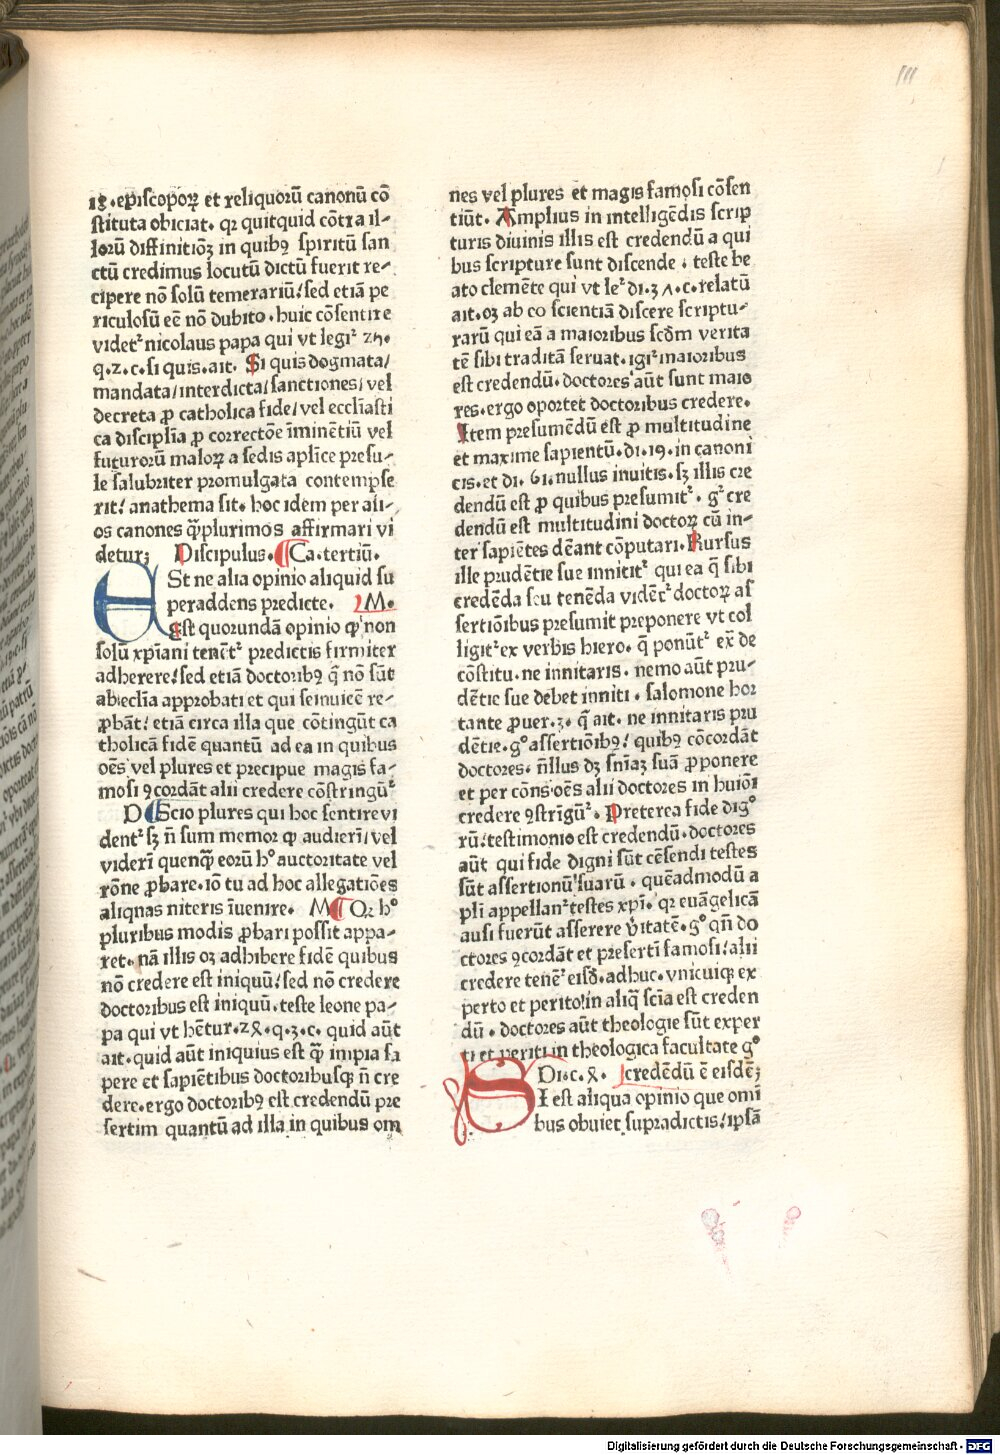 III
ıs.episcopoꝝ et reliquorū canonū cō
stituta obiciat. qꝛ quitquid cōtra il-
lorū diffinitiōꝫ in quibꝯ spiritū san
ctū credimus locutū dictū fuerit re-
cipere nō solū temerariū/ sed etiā pe
riculosū eē nō dubito. huic cōsentire
videtꝛ nicolaus papa qui vt legiꝛ zꝫ.
q.z.c.si quis.ait. Si quis dogmata/
mandata/interdicta/sanctiones/ vel
decreta ꝓ catholica fide/vel eccl̄iasti
ca disciplīa ꝓ correctōe īminētiū vel
futurorū maloꝝ a sedis apl̄ice presu-
le salubriter promulgata contempse
rit/ anathema sit. hoc idem per ali-
os canones q̄plurimos affirmari vi
detur; Discipulus. Ca.tertiū.
ESt ne alia opinio aliquid su
peraddens predicte. M.
Est quorundā opinio ꝙ non
solū xp̄iani tenētꝛ predictis firmiter
adherere/sed etiā doctoribꝯ q̄ nō sūt
ab eccl̄ia approbati et qui seinuicē re-
ꝓbāt/ etiā circa illa que cōtingūt ca
tholicā fidē quantū ad ea in quibus
oēs vel plures et precipue magis fa-
mosi ꝯcordāt alii credere cōstringūꝛ
D Scio plures qui hoc sentire vi
dentꝛ sꝫ n̄ sum memor ꝙ audierī/ vel
viderī quenq̄ eorū hᵒ auctoritate vel
rōne ꝓbare. iō tu ad hoc allegatiōes
aliqnas niteris īuenire. M Qꝛ hᵒ
pluribus modis ꝓbari possit appa-
ret. nā illis oꝫ adhibere fidē quibus
nō credere est iniquū/ sed nō credere
doctoribus est iniquū. teste leone pa-
pa qui vt hētur.zꝝ.q.ꝫ.c. quid aūt
ait. quid aūt iniquius est q̄ impia sa
pere et sapiētibus doctoribusqꝫ n̄ cre
dere. ergo doctoribꝯ est credendū pre
sertim quantū ad illa in quibus om
nes vel plures et magis famosi cōsen
tiūt. Amplius in intelligēdis scrip
turis diuinis illis est credendū a qui
bus scripture sunt discende. teste be
ato clemēte qui vt leᵍ di.3Λ.c.relatū
ait.oꝫ ab eo scientiā discere scriptu-
rarū qui eā a maioribus scd̄m verita
tē sibi traditā seruat. igiꝛ maioribus
est credendū. doctores aūt sunt maio
res. ergo oportet doctoribus credere.
Item presumēdū est ꝓ multitudine
et maxime sapientū. di.19.in canoni
cis. et di. 61. nullus inuitis. sꝫ illis cre
dendū est ꝓ quibus presumitꝛ. gᵒ cre
dendū est multitudini doctoꝝ cū in-
ter sapiētes dēant cōputari. Rursus
ille prudētie sue innititꝛ qui ea q̄ sibi
credēda seu tenēda vidēꝛ doctoꝝ as
sertiōibus presumit preponere vt col
ligitꝛ ex verbis hiero. q̄ ponūtꝛ ex̄ de
cōstitu. ne innitaris. nemo aūt pru-
dētie sue debet inniti. salomone hor
tante ꝓuer.3. q̄ ait. ne innitaris pru
dētie. gᵒ assertiōibꝯ/ quibꝯ cōcordāt
doctores. n̄llus dꝫ sn̄iaꝫ suā ꝓponere
et per cōn̄s oēs alii doctores in huiōi
credere ꝯstrīgūꝛ. Preterea fide digᵒ
rū/ testimonio est credendū. doctores
aūt qui fide digni sūt cēsendi testes
sūt assertionū suarū. quēadmodū a
pli appellanꝛ testes xp̄i. qꝛ euāgelicā
ausi fuerūt asserere v̄itatē. gᵒ qn̄ do
ctores ꝯcordāt et presertī famosi/ alii
credere tenēꝛ eisd̄. adhuc. vnicuiqꝫ ex
perto et perito/ in aliq̄ scīa est creden
dū. doctores aūt theologie sūt exper
ti et periti in theologica facultate gᵒ
Disc. ꝝ. credēdū ē eisdē;
SI est aliqua opinio que omī
bus obuiet supradictis/ ipsā
Digitalisierung gefördert durch die Deutsche Forschungsgemeinschaft - DFG